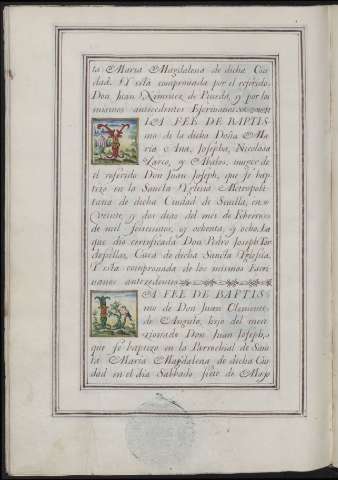 ta Maria Magdalena de dicha Ciu
dad. Y esta comprouada por el referido
Don Juan Ximenez de Pineda, y por los
mismos antecedentes Escriuanos
Y LA FEE DE BAPTIS
mo de la dicha Doña Ma
ria Ana, Josepha, Nicolasa
Larco, y Abalos, muger de
el referido Don Juan Joseph, que se bap
tezo en la Sancta Yglesia Metropoli
tana de dicha Ciudad de Seuilla, en
veinte, y dos dias del mes de Febrero
de mil, seiscientos, y ochenta, y ocho. La
que dio certificada Don Pedro Joseph Tor
desyllas, Cura de dicha Sancta Yglesia.
Y esta comprouada de los mismos Escri
uanos antecedentes
LA FEE DE BAPTIS
mo de Don Juan Clemente
de Angulo, hijo del men
zionado Don Juan Joseph,
que se baptezo en la Parrochial de San
ta Maria Magdalena de dicha Ciu
dad en el dia Sabbado siete de Mayo